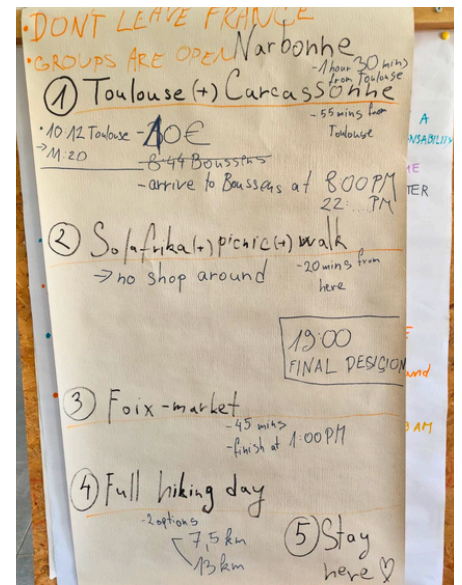 •DONT LEAVE FRANCE
•GROUPS ARE OPEN
Narbonne
-1 hour 30 mins
from Toulouse
① Toulouse (+) Carcassonne
-55 mins from
Toulouse
•10:12 Toulouse - 10€
→ 11:20
-8:44 Boussens
-arrive to Boussens at 8:00 PM
22: PM
② Solafrika (+) picnic (+) walk
→ no shop around
-20 mins from
here
19:00
FINAL DESIGION
③ Foix-market
-45 mins
-finish at 1:00 PM
④ Full hiking day
-2 options
7,5 km
13 km
⑤ Stay
here ♡
A
NSABILITY
TER
and
AM